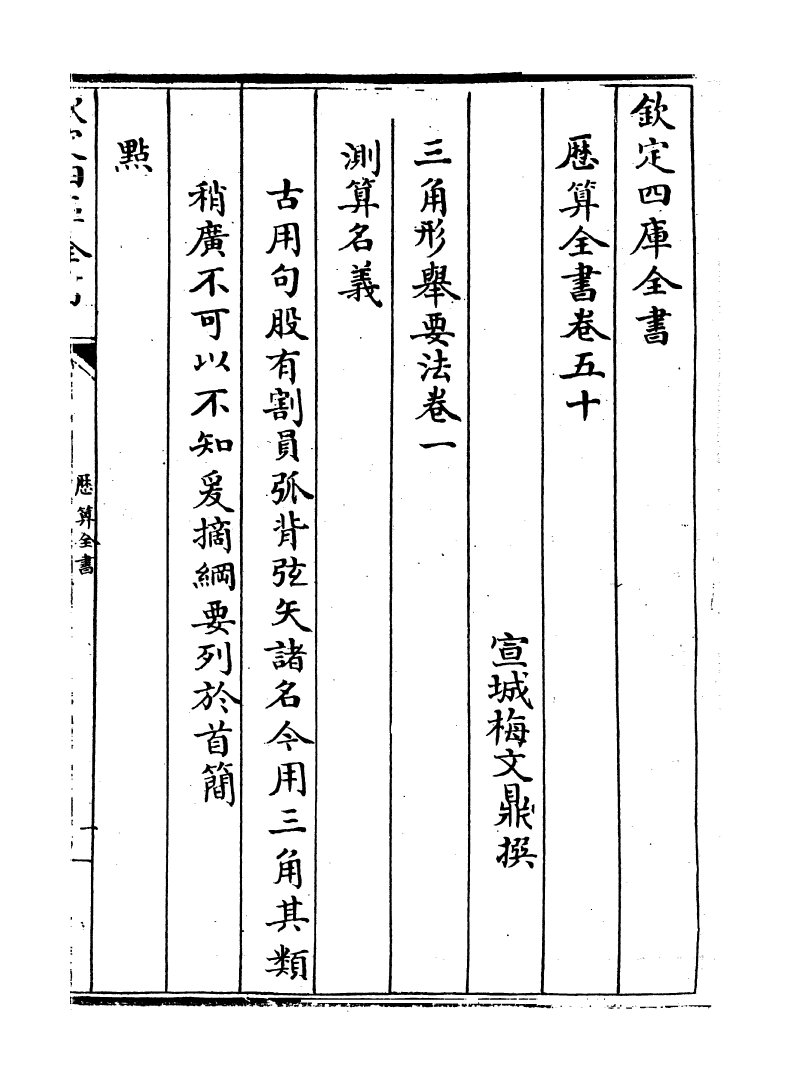 欽定四庫全書
厯算全書卷五十
宣城梅文鼎撰
三角形舉要法卷一
測算名義
古用句股有割員弧背弦矢諸名今用三角其類
稍廣不可以不知爰摘綱要列於首簡
點
厯算全書